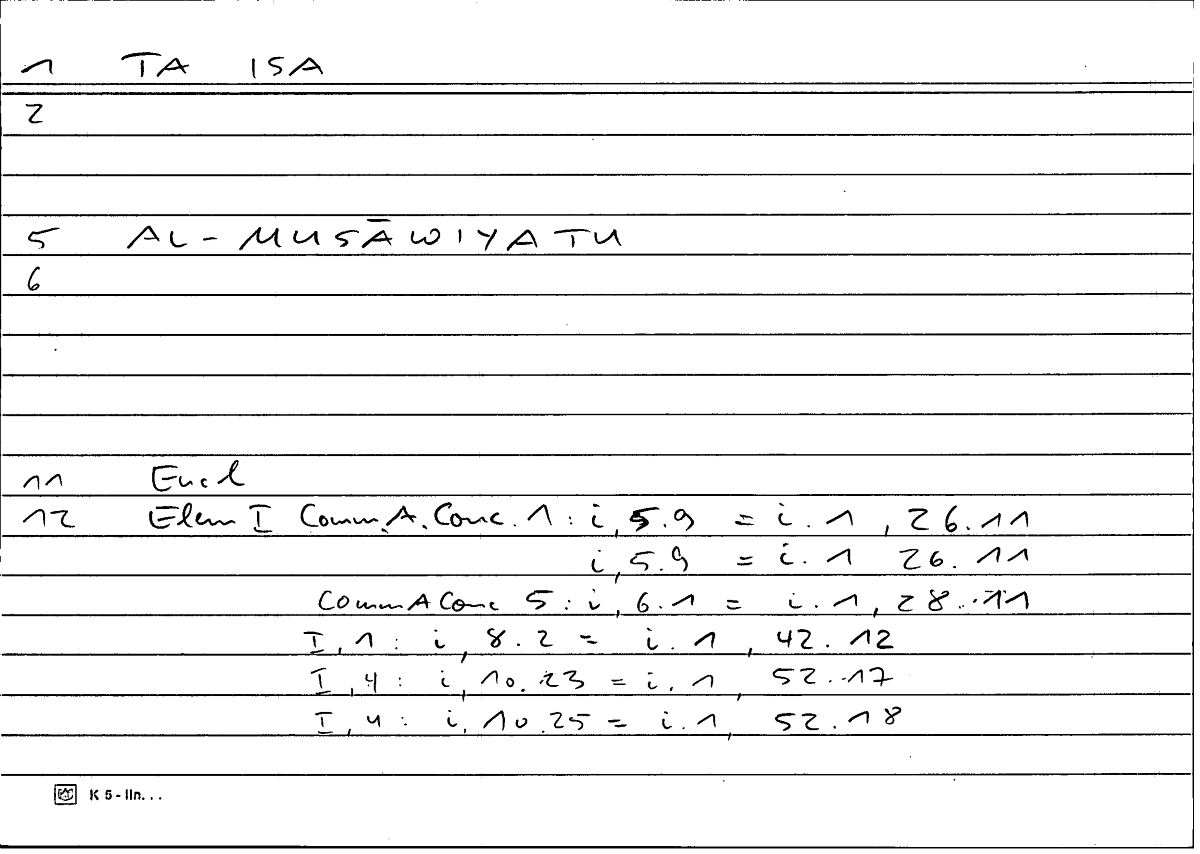 1 TA ISA
2
5 AL-MUSĀWIYATU
6
11 Eucl
12 Elem I Comm.A.Conc. 1: i, 5.9 = i.1, 26.11
i, 5.9 = i.1 26.11
Comm A Conc 5: i, 6.1 = i.1, 28.11
I, 1: i, 8.2 = i.1, 42.12
I, 4: i, 10.23 = i.1, 52.17
I, 4: i, 10.25 = i.1, 52.18
K 5 - lln...